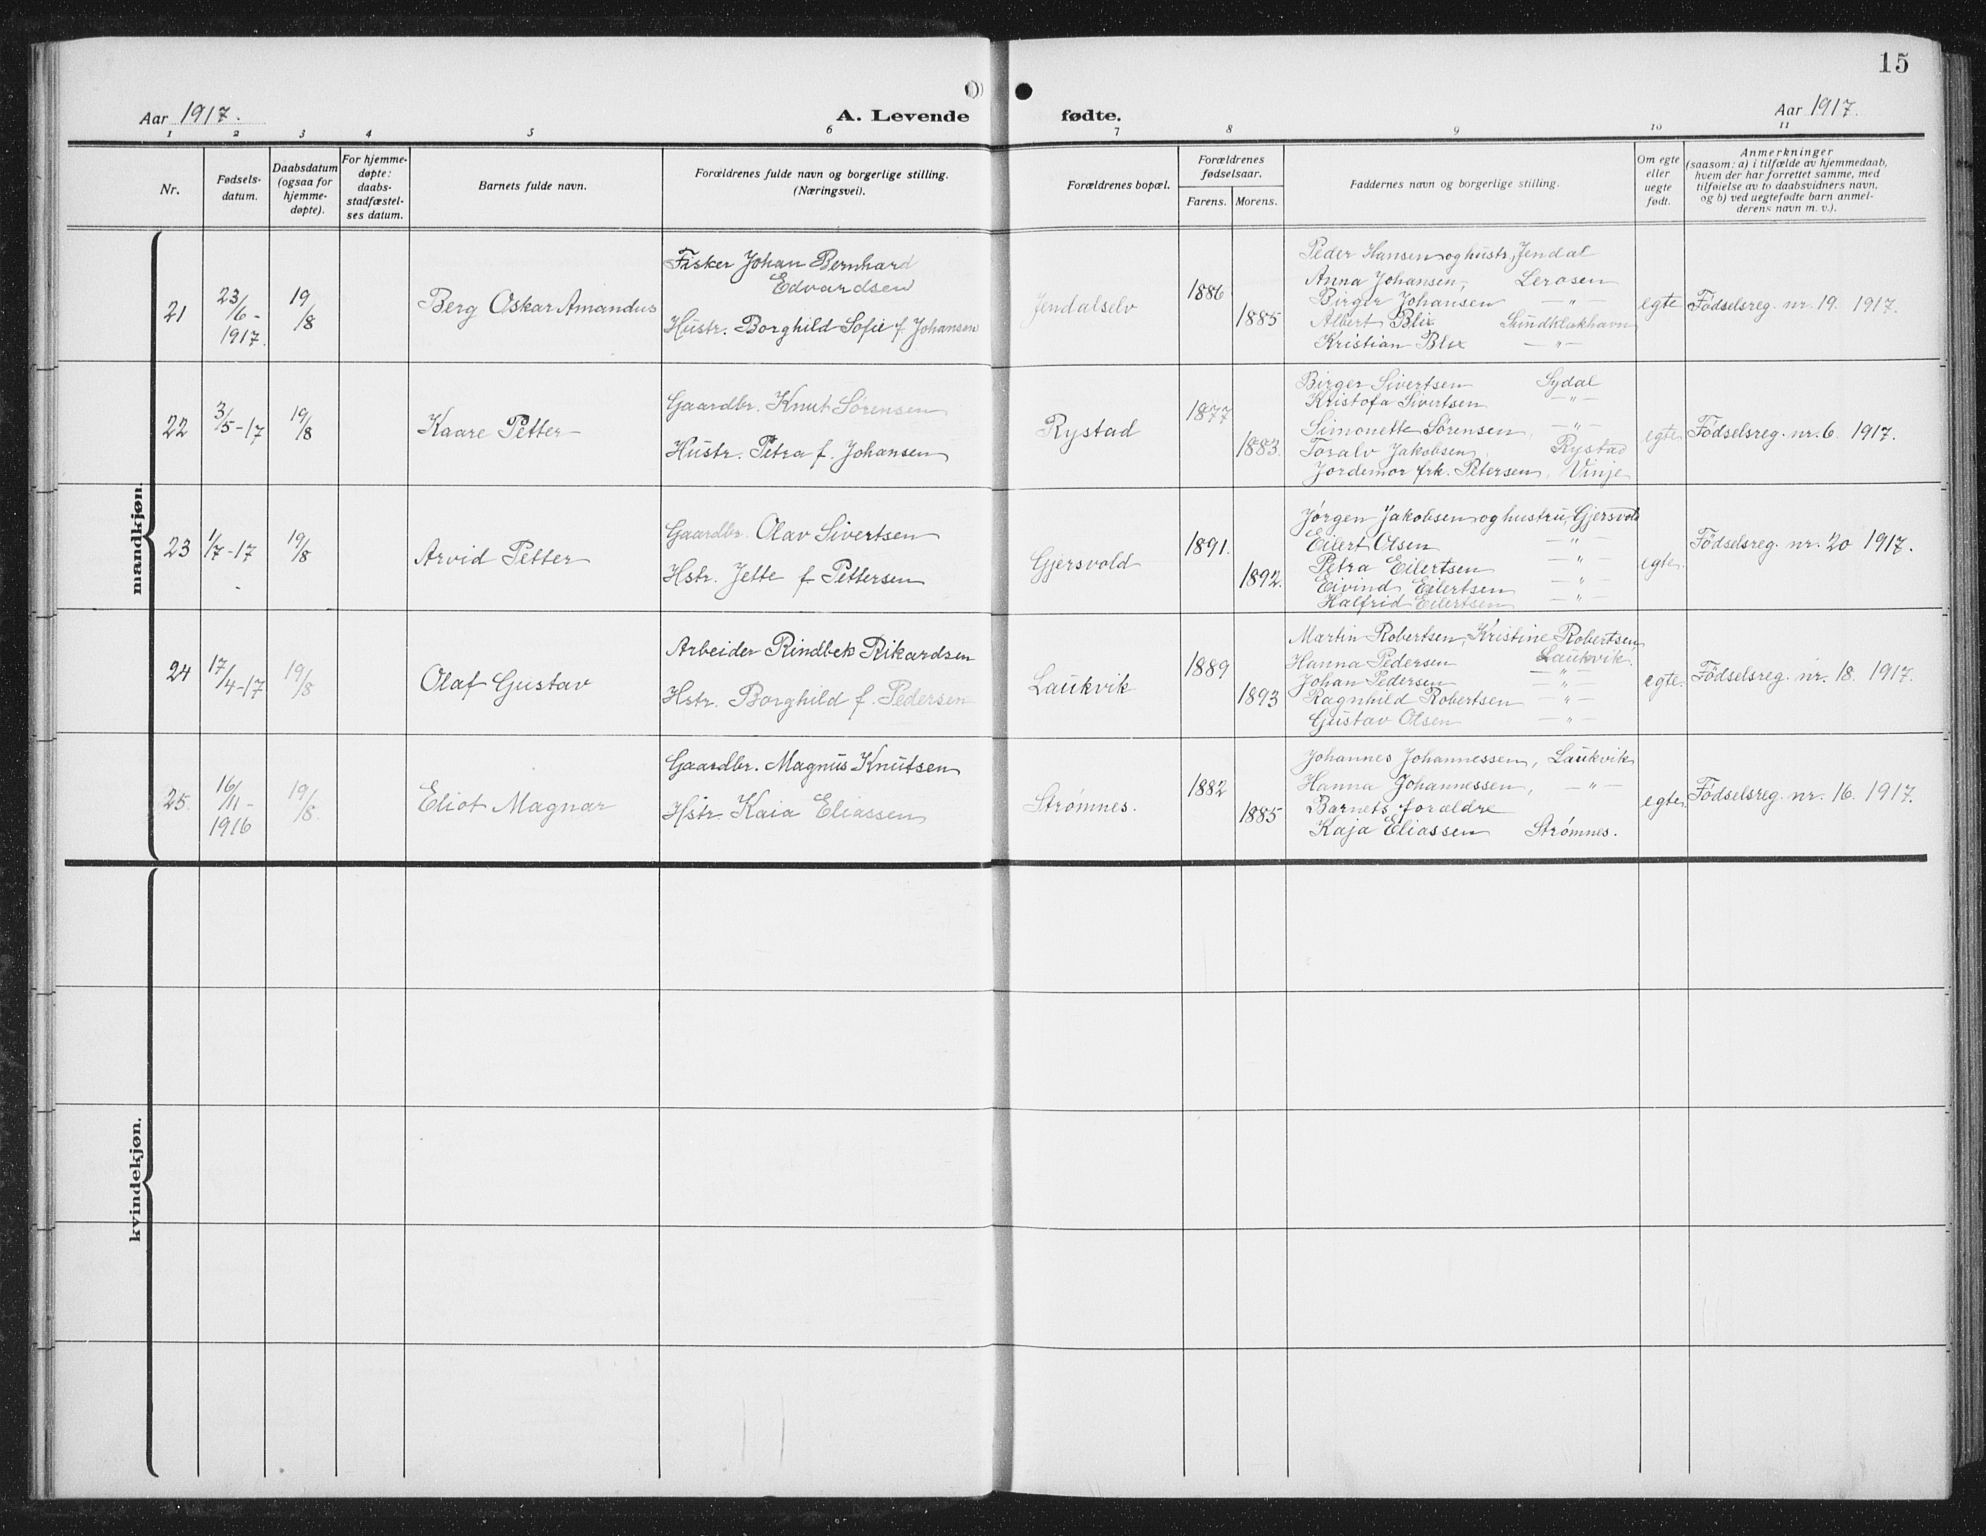 15
Aar 1917.
A. Levende fødte.
Aar 1917.
1 2 3 4 5 6 7 8 9 10 11
Nr.
Fødsels-
datum.
Daabsdatum
(ogsaa for
hjemme-
døpte).
For hjemme-
døpte:
daabs-
stadfæstel-
ses datum.
Barnets fulde navn.
Forældrenes fulde navn og borgerlige stilling.
(Næringsvei).
Forældrenes bopæl.
Forældrenes
fødselsaar.
Farens. Morens.
Faddernes navn og borgerlige stilling.
Om egte
eller
uegte
født.
Anmerkninger
(saasom: a) i tilfælde av hjemmedaab,
hvem der har forrettet samme, med
tilføielse av to daabsvidners navn,
og b) ved uegtefødte barn anmel-
derens navn m. v.).
mandkjøn.
21
23/6-
1917.
19/8
Berg Oskar Amandus
Fisker Johan Bernhard
Edvardsen
Hustr. Borghild Sofie f. Johansen
Jendalselv
1886
1885
Peder Hansen og hustr., Jendal
Anna Johansen, Lerosen
Birger Johansen —"—
Albert Blix Sundklakhavn
Kristian Blix —"—
egte
Fødselsreg. nr. 19. 1917.
22
3/5-17
19/8
Kaare Petter
Gaardbr. Knut Sørensen
Hustr. Petra f. Johansen
Rystad
1877
1883.
Birger Sivertsen Sydal
Kristofa Sivertsen —"—
Simonette Sørensen, —"—
Toralv Jakobsen, Rystad
Jordemor frk. Petersen, Vinje
egte
Fødselsreg. nr. 6. 1917.
23
1/7-17
19/8
Arvid Petter
Gaardbr. Olav Sivertsen
Hstr. Jette f. Pettersen
Gjersvold
1891.
1892.
Jørgen Jakobsen og hustru, Gjersvold
Eilert Olsen —"—
Petra Eilertsen —"—
Eivind Eilertsen —"—
Halfrid Eilertsen —"—
egte.
Fødselsreg. nr. 20 1917.
24
17/4-17
19/8
Olaf Gustav
Arbeider Rindbek Rikardsen
Hstr. Borghild f. Pedersen
Laukvik
1889
1893
Martin Robertsen, Kristine Robertsen,
Hanna Pedersen Laukvik.
Johan Pedersen —"—
Ragnhild Robertsen —"—
Gustav Olsen —"—
egte.
Fødselsreg. nr. 18. 1917.
25.
16/11-
1916
19/8.
Eliot Magnar
Gaardbr. Magnus Knutsen
Hstr. Kaia Eliassen
Strømnes.
1882
1885
Johannes Johannessen, Laukvik
Hanna Johannessen, —"—
Barnets forældre
Kaja Eliassen Strømnes.
egte.
Fødselsreg. nr. 16. 1917.
kvindekjøn.